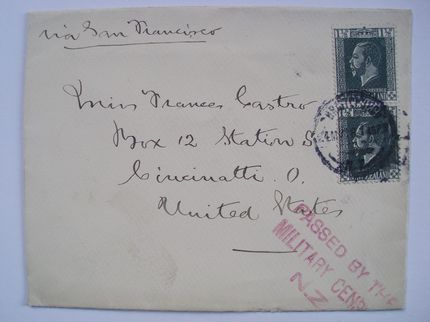 via San Francisco
Miss Frances Castro
Box 12 Station S
Cincinatti. O.
United States
1½ 1½
ZEALAND
PASSED BY THE
MILITARY CENS
N.Z.